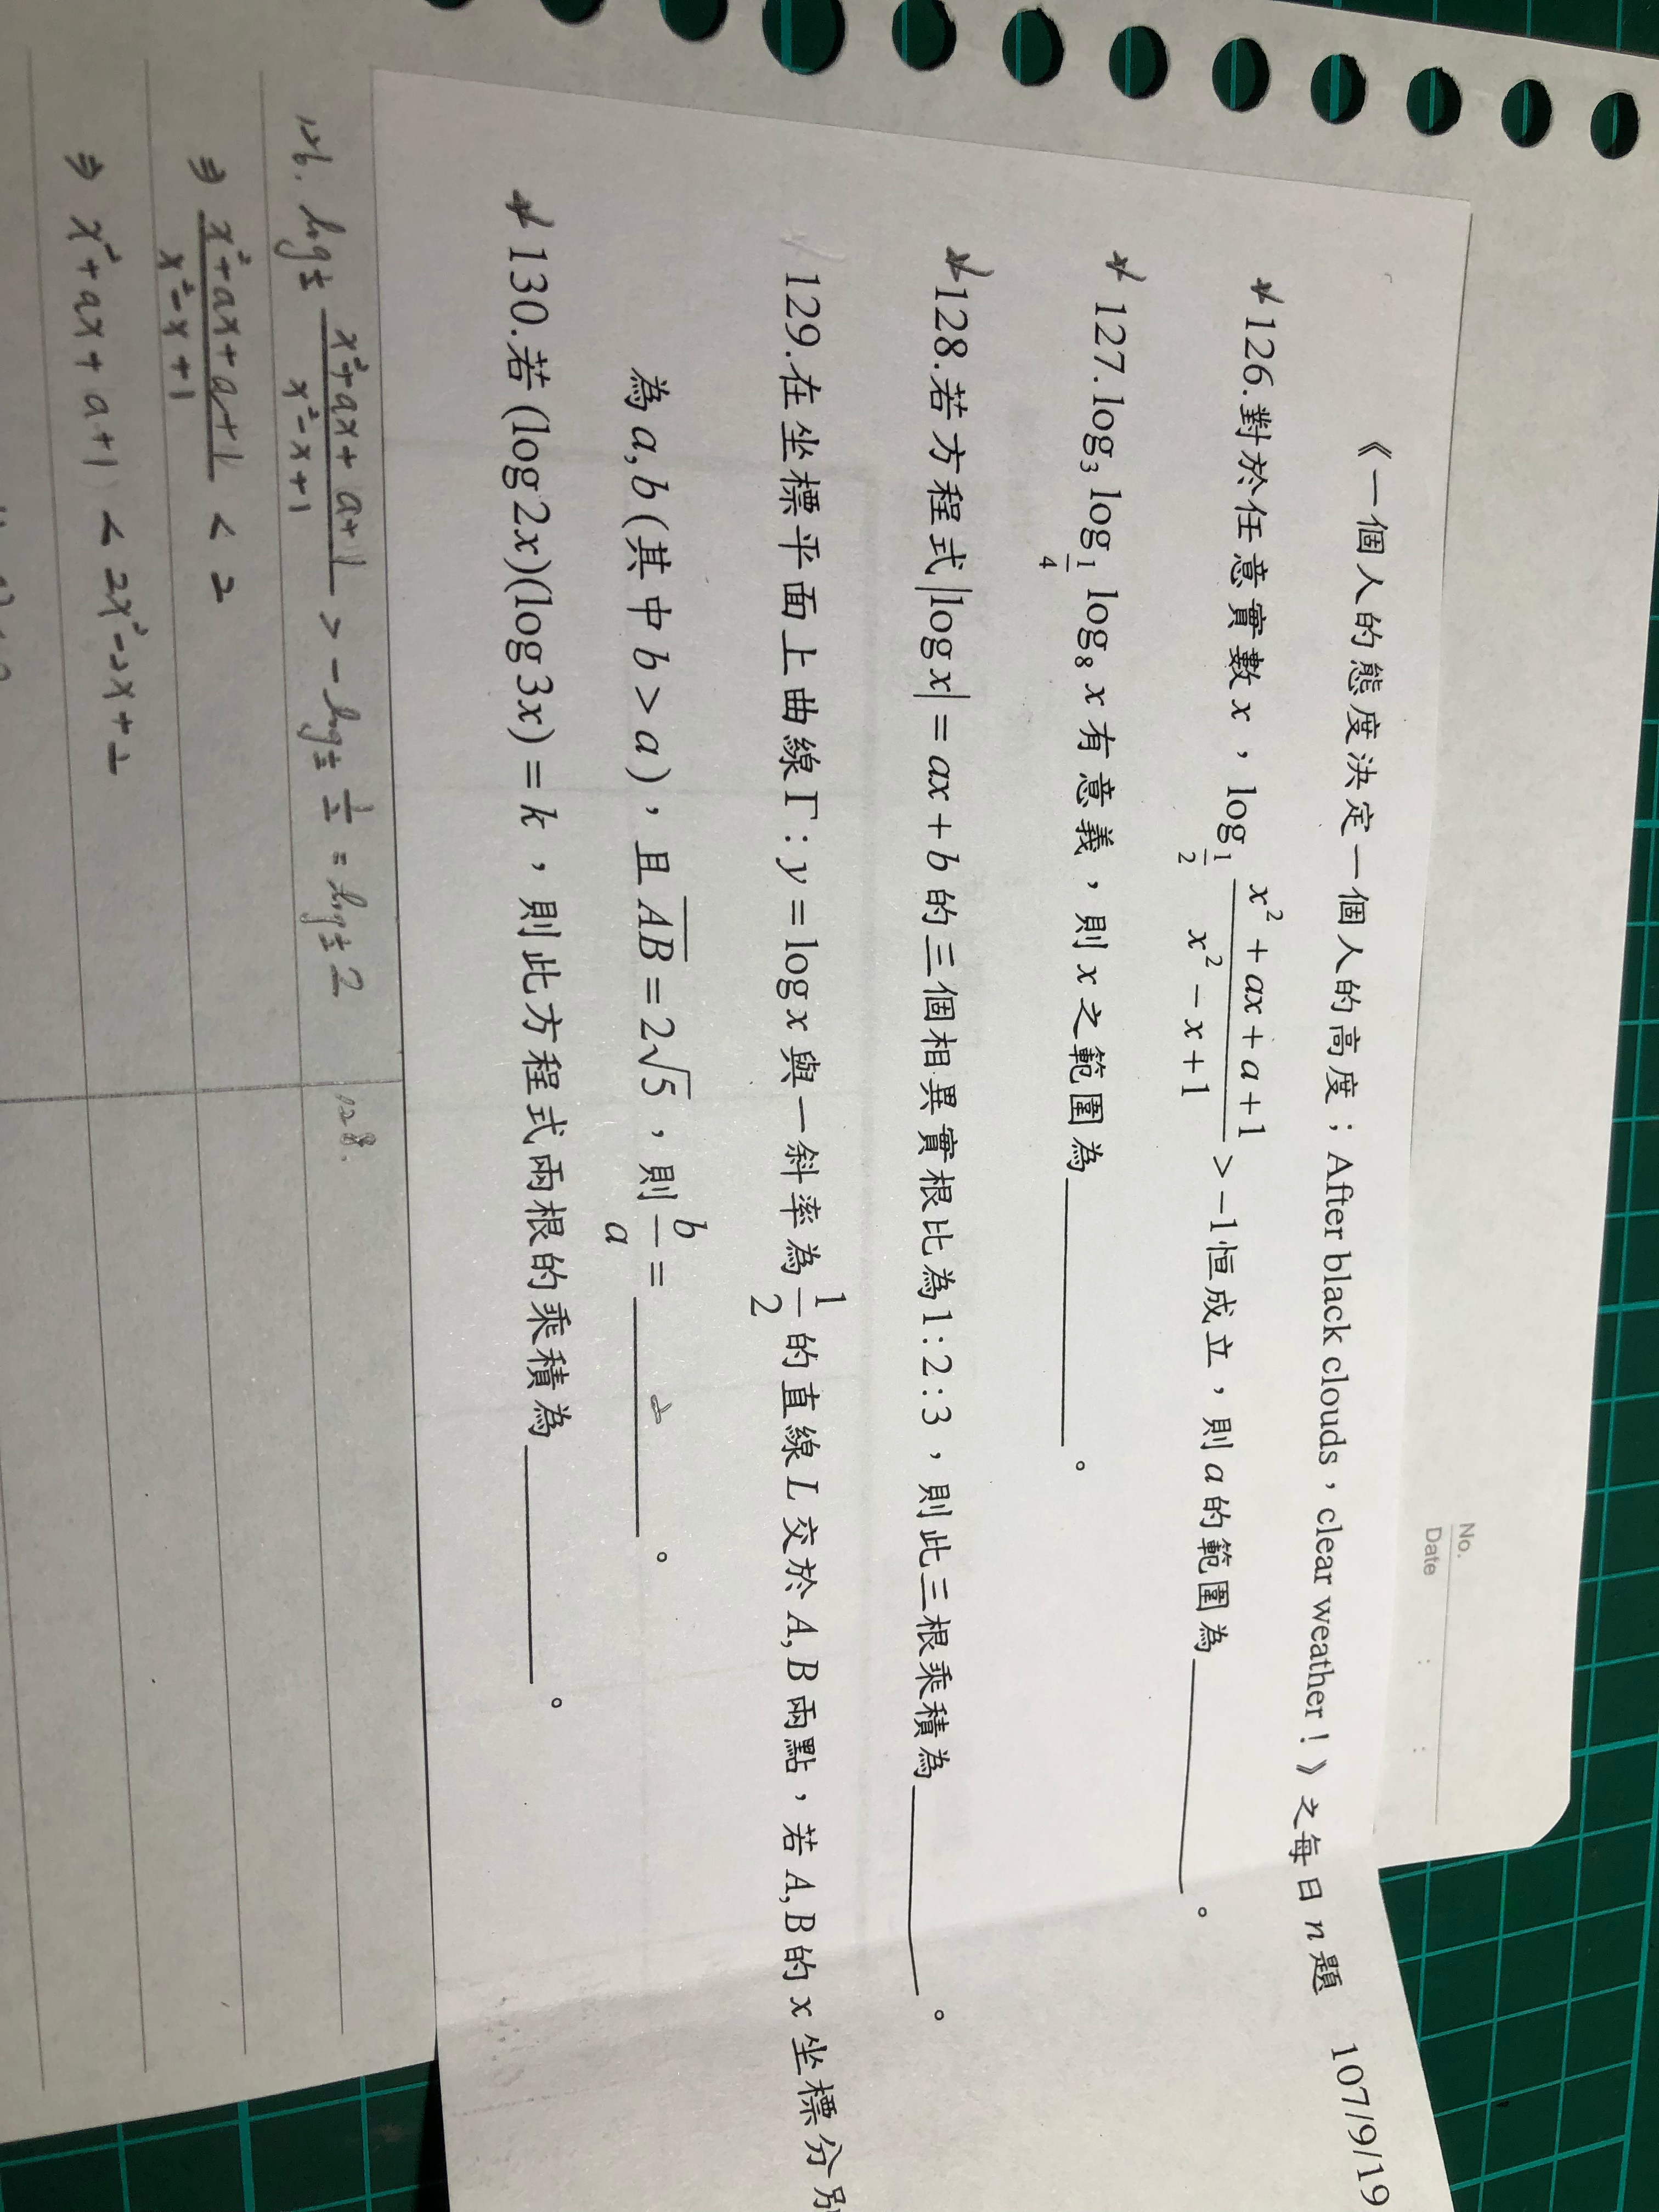 No.
Date : :
《一個人的態度決定一個人的高度；After black clouds，clear weather！》之每日 n 題 107/9/19
126.對於任意實數 x，log_{1/2} (x²+ax+a+1)/(x²-x+1) > -1恒成立，則 a 的範圍為________。
127.log₃ log_{1/4} log₈ x 有意義，則 x 之範圍為________。
128.若方程式|log x|=ax+b 的三個相異實根比為1:2:3，則此三根乘積為________。
129.在坐標平面上曲線Γ:y=log x 與一斜率為 1/2 的直線 L 交於 A,B 兩點，若 A,B 的 x 坐標分別
為 a,b (其中 b>a)，且 AB=2√5，則 b/a=________。
130.若(log2x)(log3x)=k，則此方程式兩根的乘積為________。
126. log_{1/2} (x²+ax+a+1)/(x²-x+1) > -log_{1/2} 1/2 = log_{1/2} 2
128.
⇒ (x²+ax+a+1)/(x²-x+1) < 2
⇒ x²+ax+a+1 < 2x²-2x+2